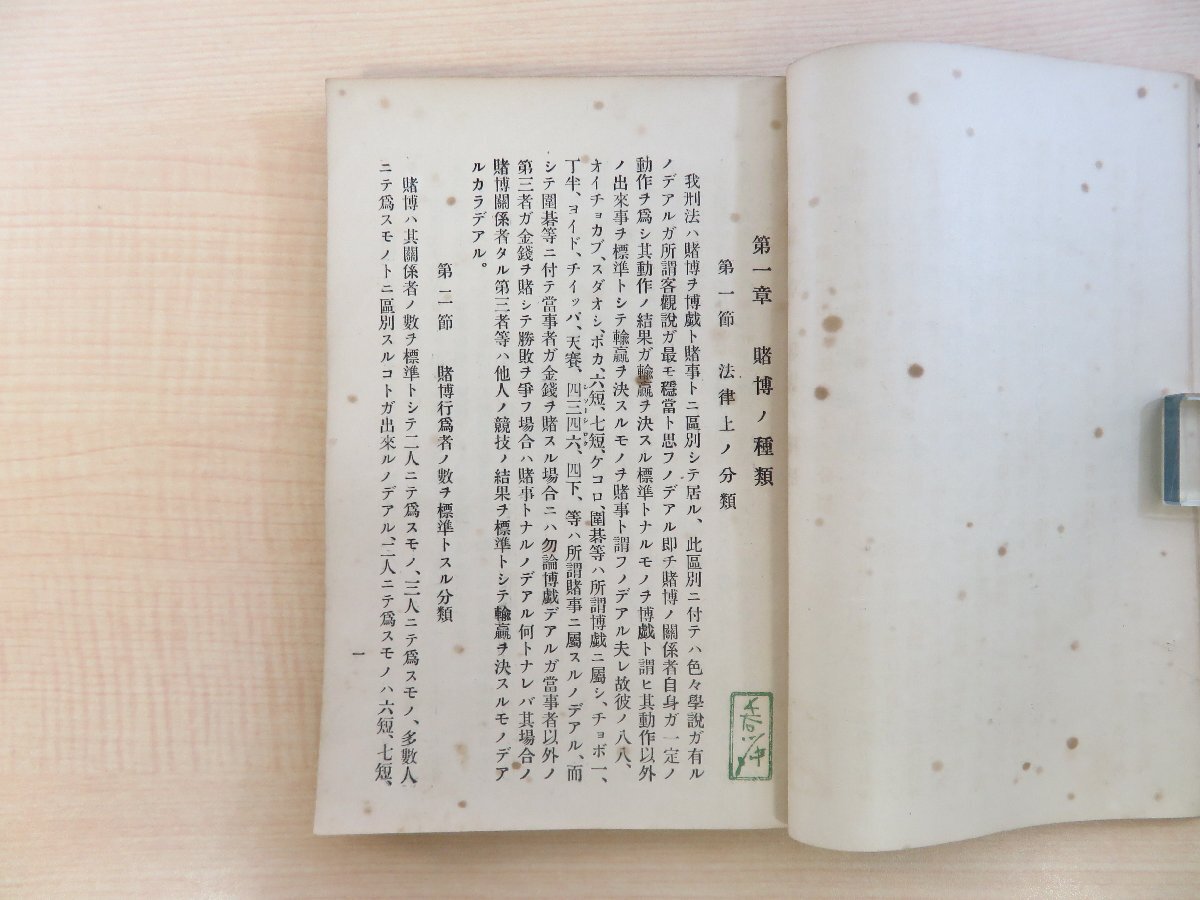 第一章　賭博ノ種類
第一節　法律上ノ分類
我刑法ハ賭博ヲ博戯ト賭事トニ區別シテ居ル、此區別ニ付テハ色々學說ガ有ル
ノデアルガ所謂客觀說ガ最モ穩當ト思フノデアル卽チ賭博ノ關係者自身ガ一定ノ
動作ヲ爲シ其動作ノ結果ガ輸贏ヲ決スル標準トナルモノヲ博戯ト謂ヒ其動作以外
ノ出來事ヲ標準トシテ輸贏ヲ決スルモノヲ賭事ト謂フノデアル夫レ故彼ノ八八、
オイチョカブ、スダオシ、ボカ、六短、七短、ケコロ、圍碁等ハ所謂博戯ニ屬シ、チョボ一、
丁半、ヨイド、チイッパ、天賽、四三四六、四下、等ハ所謂賭事ニ屬スルノデアル、而
シテ圍碁等ニ付テ當事者ガ金錢ヲ賭スル場合ニハ勿論博戯デアルガ當事者以外ノ
第三者ガ金錢ヲ賭シテ勝敗ヲ爭フ場合ハ賭事トナルノデアル何トナレバ其場合ノ
賭博關係者タル第三者等ハ他人ノ競技ノ結果ヲ標準トシテ輸贏ヲ決スルモノデア
ルカラデアル。
第二節　賭博行爲者ノ數ヲ標準トスル分類
賭博ハ其關係者ノ數ヲ標準トシテ二人ニテ爲スモノ、三人ニテ爲スモノ、多數人
ニテ爲スモノトニ區別スルコトガ出來ルノデアル、二人ニテ爲スモノハ六短、七短、
一